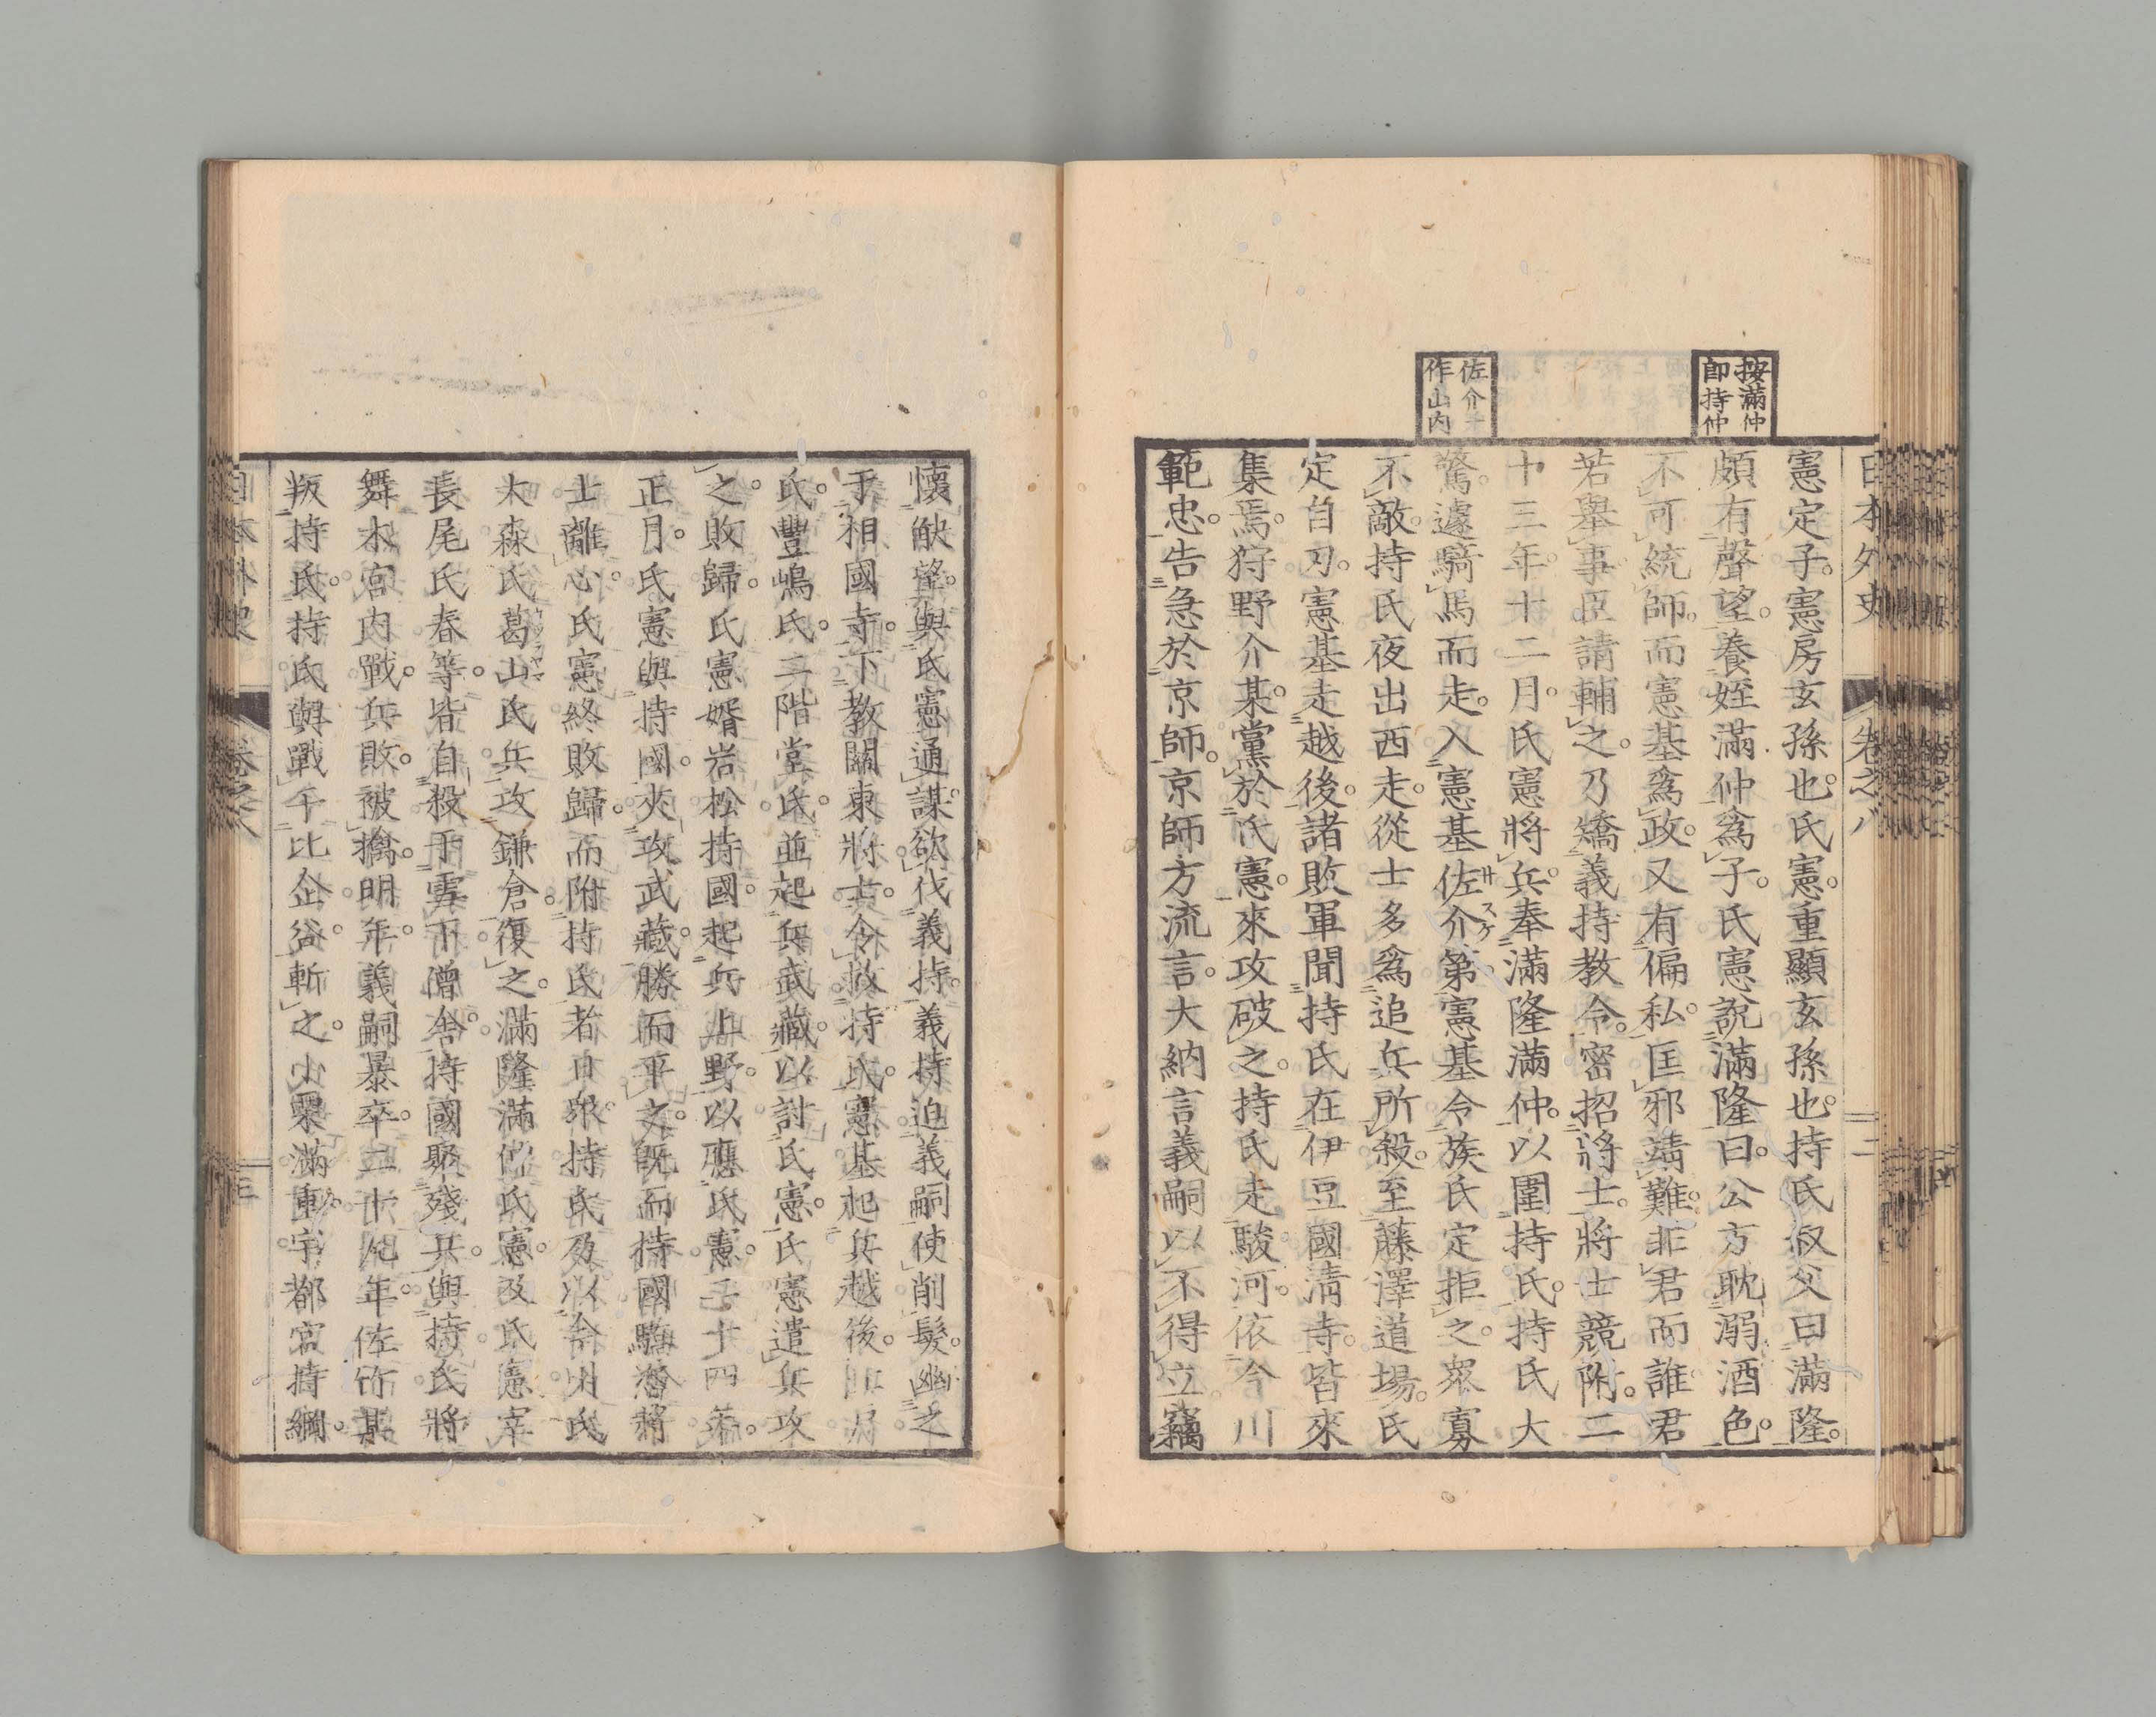 按滿仲
即持仲
佐介
作山内
日本外史 卷之八 二
憲定子。憲房玄孫也。氏憲。重顯玄孫也。持氏叔父曰滿隆。
頗有聲望。養姪滿仲爲子。氏憲說滿隆曰。公方耽溺酒色。
不可統師。而憲基爲政。又有偏私。匡邪靖難。非君而誰。君
若舉事。臣請輔之。乃矯義持教令。密招將士。將士競附。二
十三年。十二月。氏憲將兵。奉滿隆滿仲。以圍持氏。持氏大
驚。遽騎馬而走。入憲基佐介第。憲基令族氏定拒之。眾寡
不敵。持氏夜出西走。從士多爲追兵所殺。至藤澤道場。氏
定自刃。憲基走越後。諸敗軍聞持氏在伊豆國清寺。皆來
集焉。狩野介某。黨於氏憲。來攻破之。持氏走駿河。依今川
範忠。告急於京師。京師方流言。大納言義嗣以不得立。竊
懷觖望。與氏憲通謀。欲伐義持。義持迫義嗣。使削髮。幽之
于相國寺。下教關東將士。令救持氏。憲基起兵越後。
氏。豐嶋氏。二階堂氏。並起兵武藏。以討氏憲。氏憲遣兵攻
之。敗歸。氏憲婿岩松持國。起兵上野。以應氏憲。二十四年。
正月。氏憲與持國。夾攻武藏。勝而平之。既而持國驕
士離心。氏憲終敗歸。而附持氏者日眾。持氏乃以
大森氏葛山氏兵。攻鎌倉。復之。滿隆滿仲氏憲。及氏憲宰
長尾氏春等。皆自殺于雪下僧舍。持國聚殘兵。與持氏將
舞木宮内戰。兵敗。被擒。明年。義嗣暴卒。二十九年。佐竹某
叛持氏。持氏與戰于比企谷。斬之。小栗滿重。宇都宮持綱。
日本外史 卷之八 三